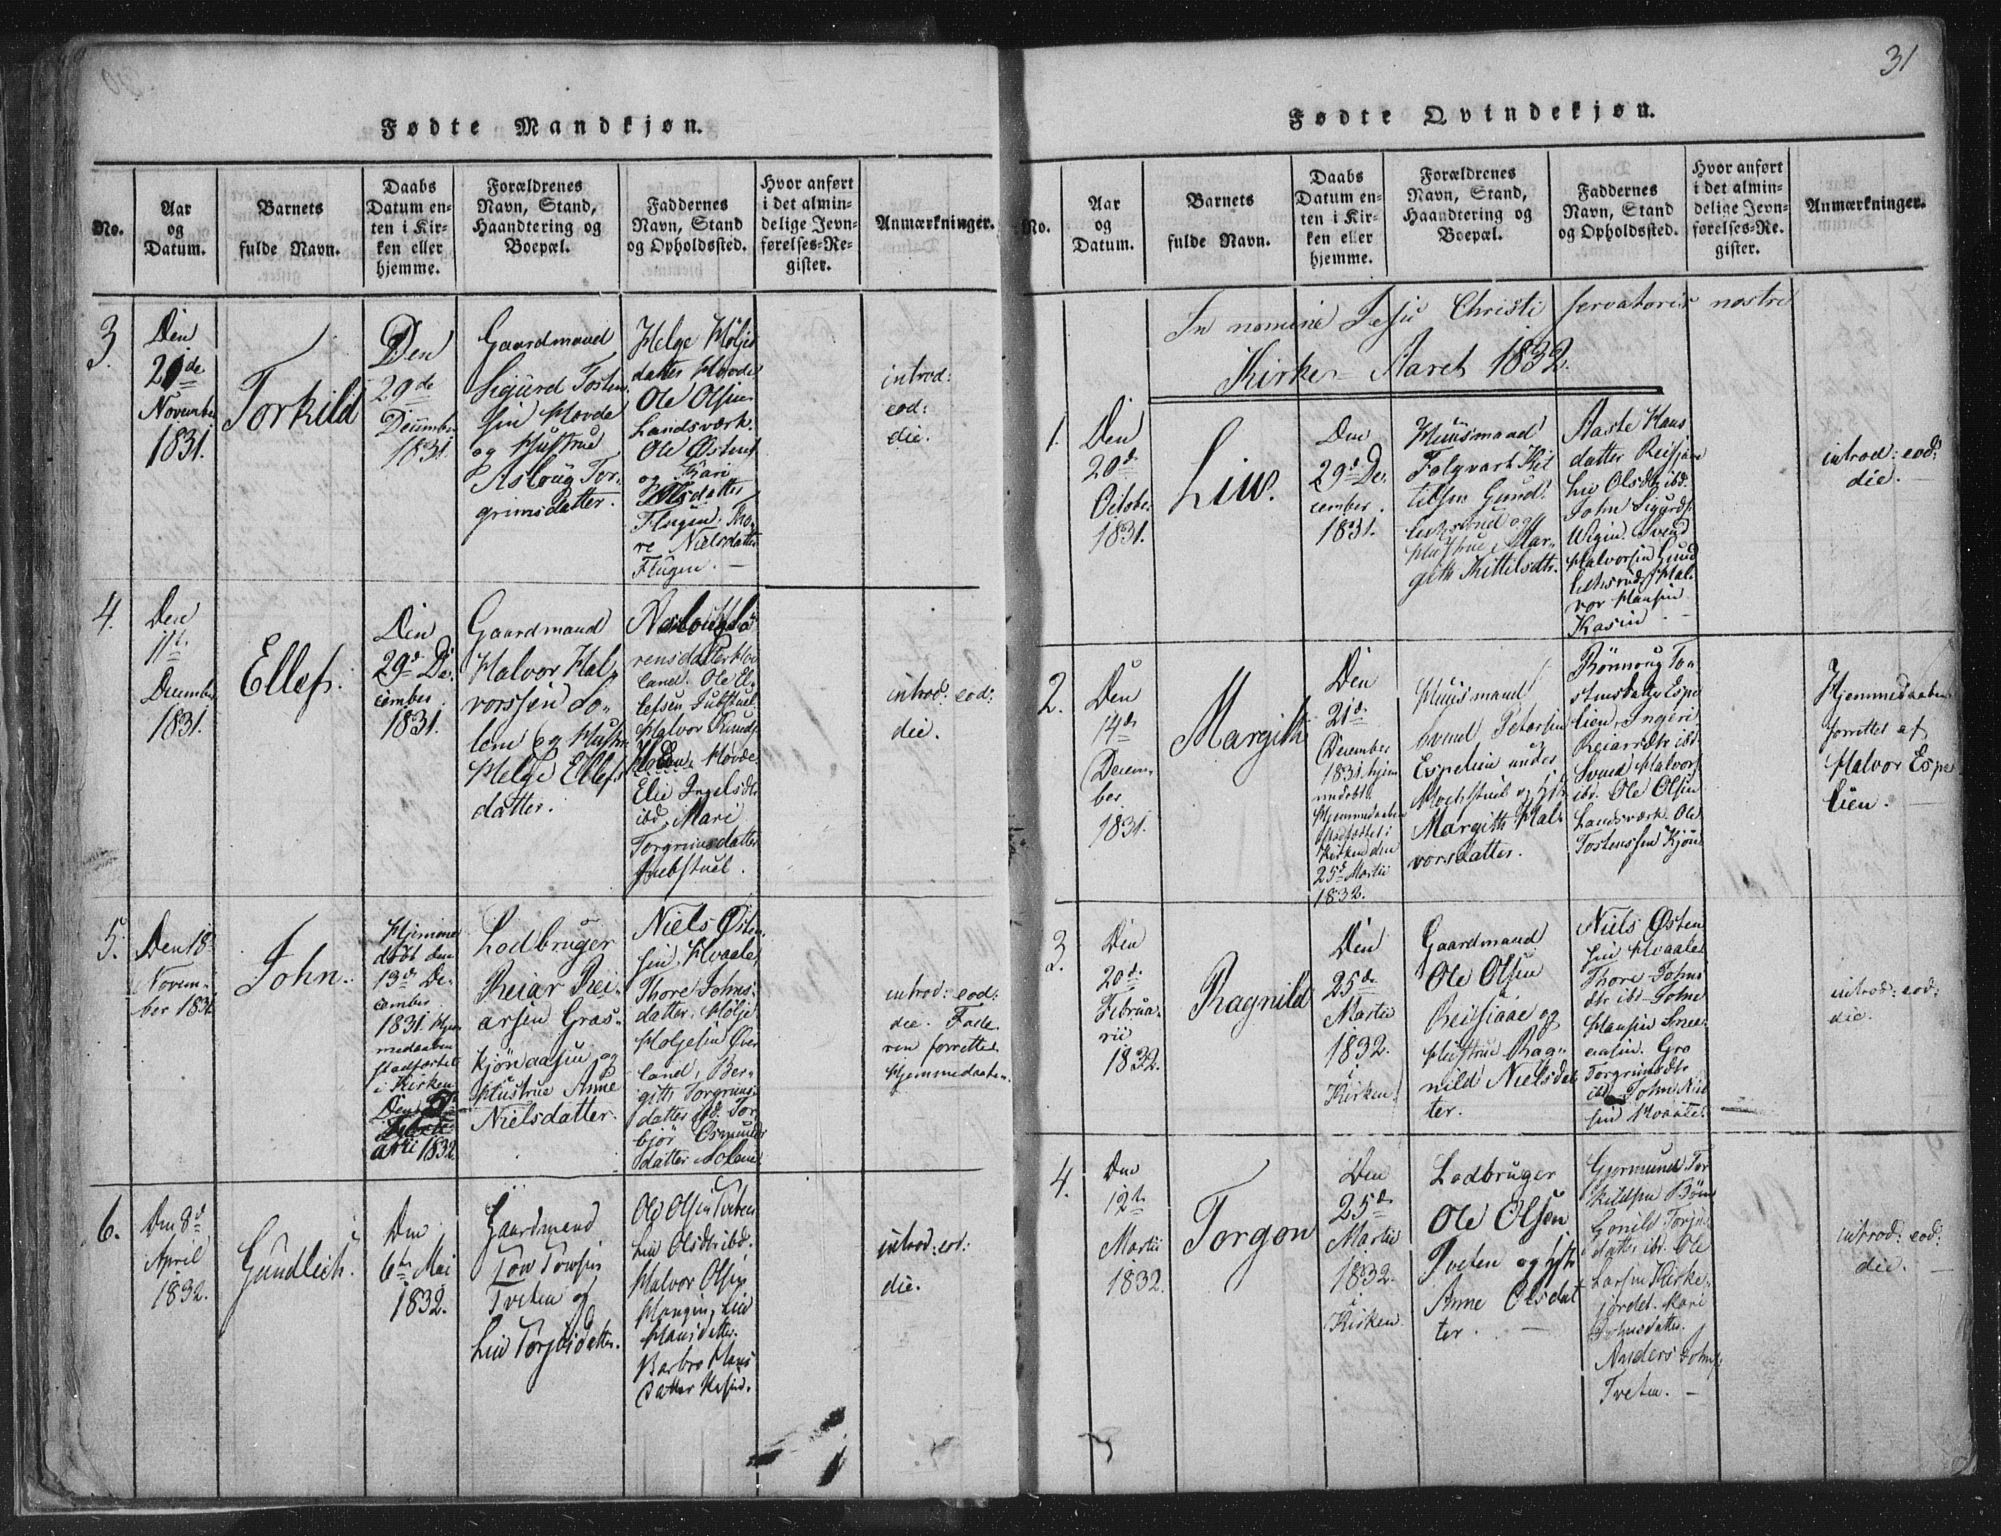 Fødte Mandkjøn.
No.
Aar
og
Datum.
Barnets
fulde Navn.
Daabs
Datum en-
ten i Kir-
ken eller
hjemme.
Forældrenes
Navn, Stand,
Haandtering og
Boepæl.
Faddernes
Navn, Stand
og Opholdssted.
Hvor anført
i det almin-
delige Jevn-
førelses-Re-
gister.
Anmærkninger.
3.
Den
November
1831.
Torkild
Den
29de
December
1831.
Gaardmand
Sigurd Tosten
sen Hovde
og Hustrue
Asloug Tor-
grimsdatter.
Helge Høljes
datter Hovde
Ole Olsen
Landsværk.
Ole Østens
og Kari
Olsdatter
Flugen. Tho-
re Nielsdatter
Flugen. —
introd:
eod:
die.
4.
Den
11te
December
1831.
Ellef.
Den
29d De-
cember
1831.
Gaardmand
Halvor Hal-
vorssen So-
lem og Hustr.
Helge Ellefs
datter.
Ole El-
lefsen
Halvor Knuds
Hovde.
ibd. Mari
Torgrimsdatter
introd: eod:
die.
5.
Den 18
Novem-
ber 1831
John.
Hjemme
døbt den
13d De-
cember
1831. Hjem
medaaben
stadfæstet
i Kirken
1832
Lodbruger
Reiar Rei-
arsen Gras-
og
Hustrue Anne
Nielsdatter.
Niels Østen-
sen Hvaale,
Thore Johns-
datter. Hølje
Holjesen Øver
land, Ber-
gith Torgrims-
datter ibd. Tor-
bjør Osmunds
datter Solem.
introd: eod:
die. Fade-
ren forrettede
Hjemmedaaben.
6.
Den 8d
April
1832.
Gundleich.
Den
6te Mai
1832.
Gaardmand
Tov Tovsen
Tveten og
Liv Torjusdatter.
Ole Olsen Tveten
Liv Olsdtr ibd.
Halvor Olsen
Liv
Hansdatter.
Barbro Hans
datter
introd: eod:
die.
31
Fødte Qvindekjøn.
No.
Aar
og
Datum.
Barnets
fulde Navn.
Daabs
Datum en-
ten i Kir-
ken eller
hjemme.
Forældrenes
Navn, Stand,
Haandtering og
Boepæl.
Faddernes
Navn, Stand
og Opholdssted.
Hvor anført
i det almin-
delige Jevn-
førelses-Re-
gister.
Anmærkninger.
In nomine Jesu Christi servatoris nostri
Kirke-Aaret 1832.
1.
Den
20d
1831.
Liv.
Den
29d De-
cember
1831.
Huusmand
Folqvart Kit
tilsen Gund
og
Hustrue Mar-
gith Kittilsdtr.
Aaste Hans
datter
Liv Olsdtr ibd.
John Sigurds.
Svend
Halvorsen Gund
Hal-
vor Hansen
introd: eod:
die. —
2.
Den
14d
Decem-
ber
1831.
Margith
Den
21d
December
1831 hjem
medøbt.
Hjemmedaaben
stadfæstet i
Kirken den
25d Martii
1832.
Huusmand
Svend Petersen
Espelien under
og H.
Margith Hal-
vorsdatter.
To-
Espe
lien. Ingeri
Reiarsdtr ibd.
Svend Halvors
ibd. Ole Olsen
Landsværk. Ole
Tostenssen
Hjemmedaaben
forrettet af
Halvor Espe
lien. —
3.
Den
20d
Februa-
rii
1832.
Ragnild
Den
25de
Martii
1832.
i
Kirken.
Gaardmand
Ole Olsen
og
Hustrue Rag-
nild Nielsdat
ter.
Niels Østen
sen Hvaale,
Thore Johns
dtr ibd. John
Hansen
Gro
Torgrimsdtr
ibd. John Niel
sen Hvaale.
introd: eod:
die.
4.
Den
12te
Martii
1832.
Torgon
Den
25d
Martii
1832.
i
Kirken.
Lodbruger
Ole Olsen
Tveten og H.
Anne Olsdat
ter. —
Gjermund Tor
kildsen Bøen
Gonild
datter ibd. Ole
Larsen Kirke-
jordet. Mari
Johnsdatter.
Anders Johns.
Tveten. —
introd: eod:
die. —